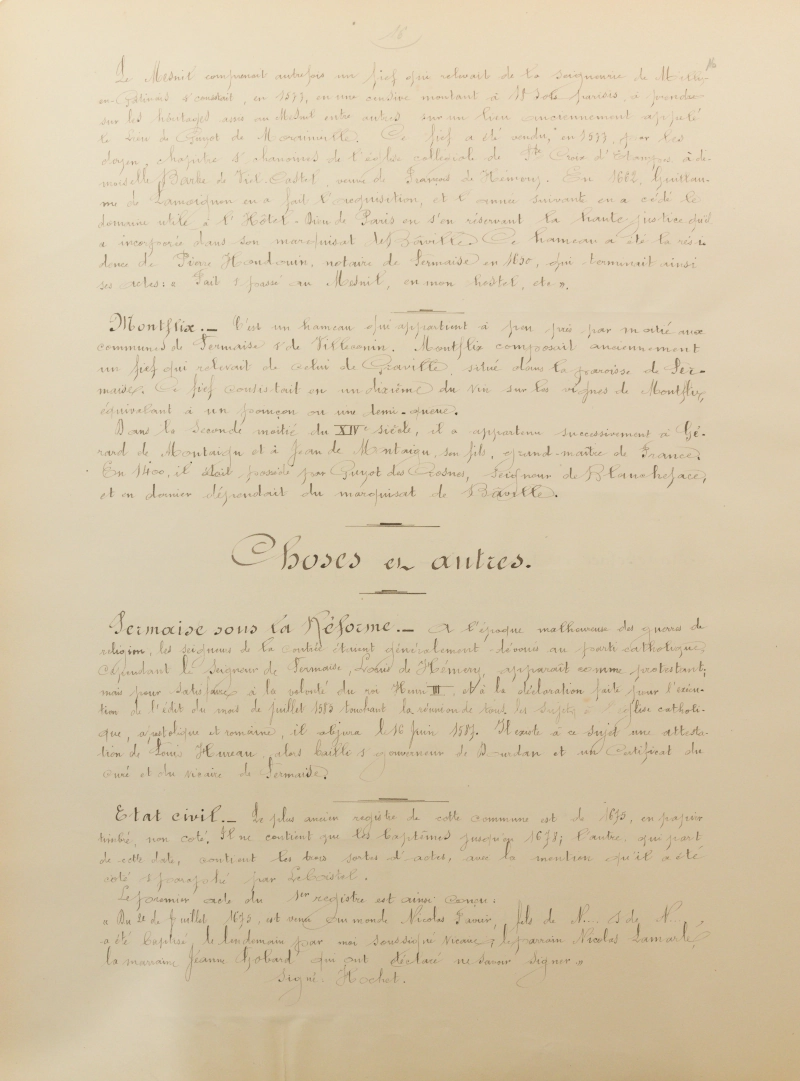 16
Le Mesnil comprenait autrefois un fief qui relevait de la seigneurie de Milly-
en-Gâtinais & consistait, en 1577, en une censive montant à 11 sols parisis, à prendre
sur les héritages assis au Mesnil entre autres sur un lieu anciennement appelé
le Lieu de Guyot de Morainville. Ce fief a été vendu, en 1577, par les
doyen, chapitre & chanoines de l'église collégiale de Ste Croix d'Etampes à de-
moiselle Barbe de Viel-Castel, veuve de François de Hémery. En 1682, Guillau-
me de Lamoignon en a fait l'acquisition, et l'année suivante en a cédé le
domaine utile à l'Hôtel-Dieu de Paris en s'en réservant la haute justice qu'il
a incorporée dans son marquisat de Bâville. Ce hameau a été la rési-
dence de Pierre Houdouin, notaire de Sermaise en 1650, qui terminait ainsi
ses actes : « Fait & passé au Mesnil, en mon hostel, etc ».
Montflix. — C'est un hameau qui appartient à peu près par moitié aux
communes de Sermaise & de Villeconin. Montflix composait anciennement
un fief qui relevait de celui de Graville, situé dans la paroisse de Ser-
maise. Ce fief consistait en un dixième du vin sur les vignes de Montflix,
équivalant à un poinçon ou une demi-queue.
Dans la seconde moitié du XIVe siècle, il a appartenu successivement à Gé-
rard de Montaigu et à Jean de Montaigu, son fils, grand-maître de France.
En 1400, il était possédé par Guyot des Crosnes, seigneur de Blancheface,
et en dernier dépendait du marquisat de Bâville.
Choses et autres.
Sermaise sous la Réforme. — A l'époque malheureuse des guerres de
religion, les seigneurs de la contrée étaient généralement dévoués au parti catholique,
Cependant le Seigneur de Sermaise, Louis de Hémery, apparaît comme protestant;
mais pour satisfaire à la volonté du roi Henri III et à la déclaration faite pour l'exécu-
tion de l'édit du mois de juillet 1585 touchant la réunion de tous les sujets à l'église catholi-
que, apostolique et romaine, il abjura le 16 juin 1587. Il existe à ce sujet une attesta-
tion de Louis Hureau, alors bailli & gouverneur de Dourdan et un Certificat du
curé et du vicaire de Sermaise.
Etat civil. — Le plus ancien registre de cette commune est de 1675, en papier
timbré, non coté. Il ne contient que les baptêmes jusqu'en 1678; l'autre, qui part
de cette date, contient les trois sortes d'actes, avec la mention qu'il a été
coté & paraphé par Lebristel.
Le premier acte du 1er registre est ainsi conçu :
« Du 2e de Juillet 1675, est venu au monde Nicolas Javier, fils de N... & de N...,
a été baptisé le lendemain par moi soussigné vicaire; le parrain Nicolas Lamarle,
la marraine Jeanne Gobard qui ont déclaré ne savoir signer »
Signé : Hochet.